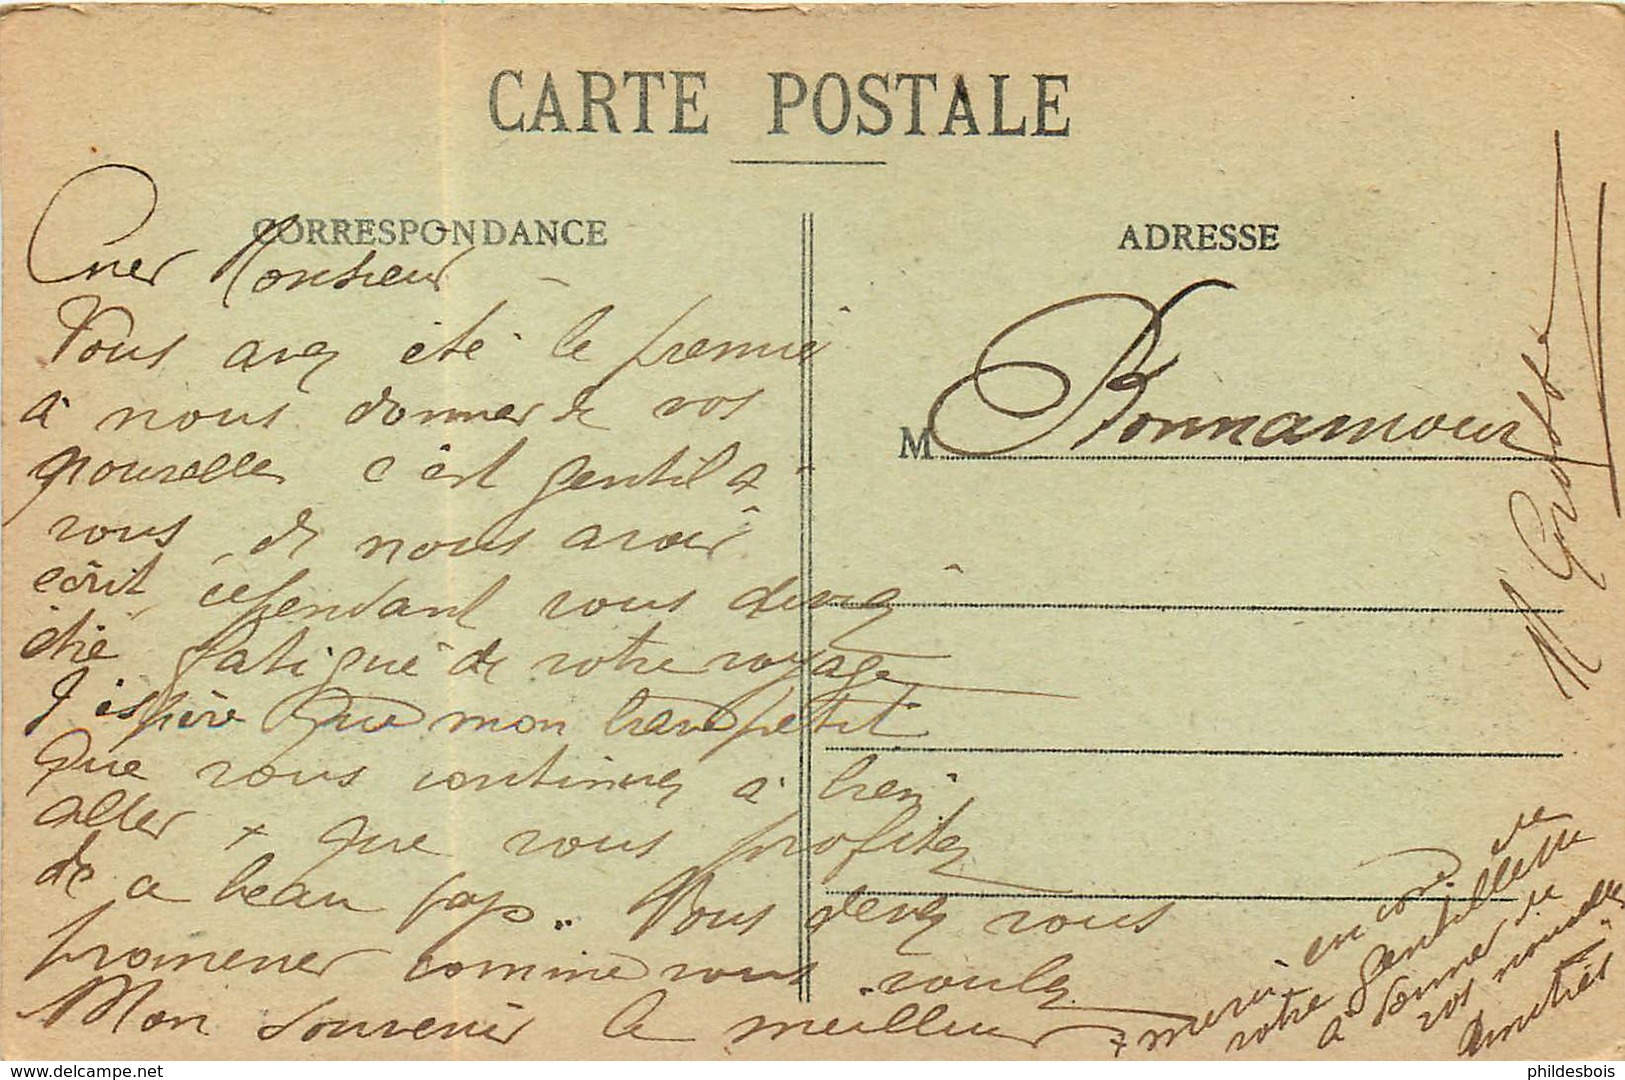 CARTE POSTALE
CORRESPONDANCE
ADRESSE
Cher Monsieur
Vous avez été le premié
à nous donner de vos
nouvelles c'est gentil à
vous de nous avoir
écrit, cependant vous deviez
étre fatigué de votre voyage
J'espère que mon petit
que vous continuez à bien
aller + que vous profitez
de ce beau pays.. Vous devez vous
promener comme vous voulez
Mon souvenir le meilleur
M Bonnamour
+ merci encore de
votre gentillesse
à donner de
vos nouvelles
Amitiés
delcampe.net
phildesbois